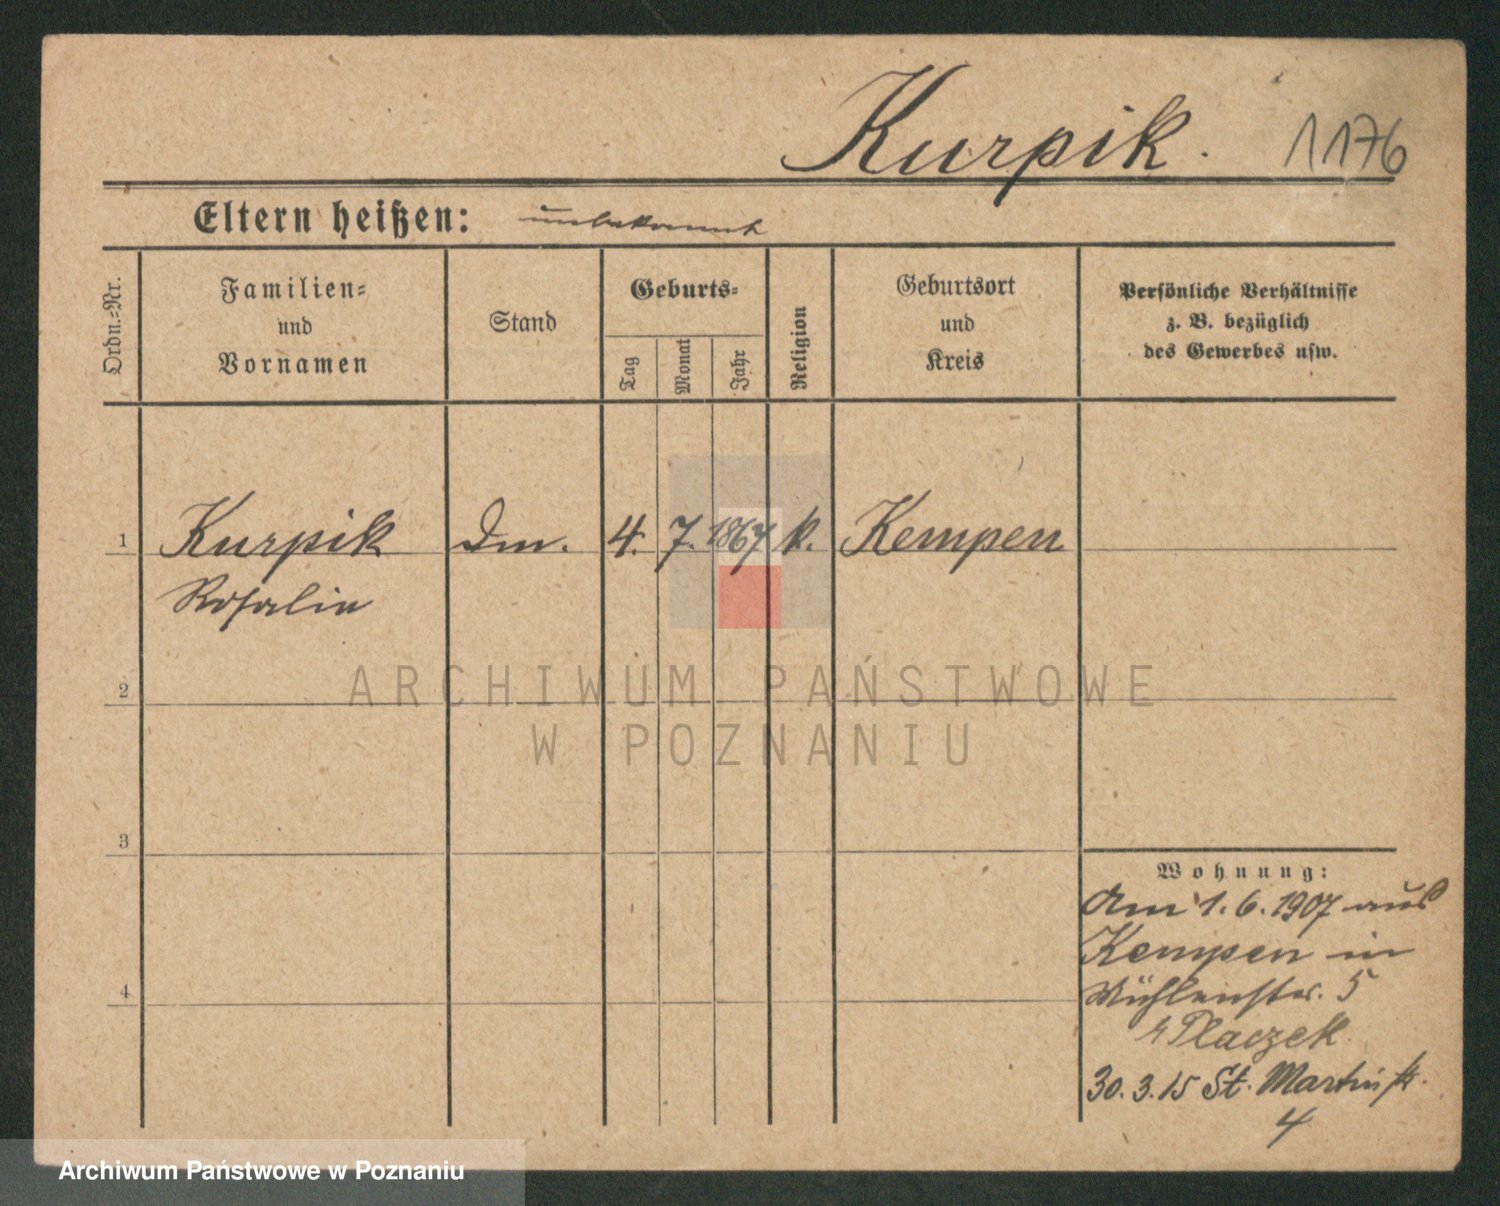 Kurpik. 1176
Eltern heißen: unbekannt
Ordn.=Nr.
Familien=
und
Vornamen
Stand
Geburts=
Tag
Monat
Jahr
Religion
Geburtsort
und
Kreis
Persönliche Verhältnisse
z. B. bezüglich
des Gewerbes usw.
1 Kurpik Dm. 4. 7. 1867 k. Kempen
Rosalie
2
3
4
Wohnung:
Am 1. 6. 1907 aus
Kempen in
Mühlenstr. 5
Placzek
30. 3. 15 St. Martinstr.
4
ARCHIWUM PAŃSTWOWE
W POZNANIU
Archiwum Państwowe w Poznaniu